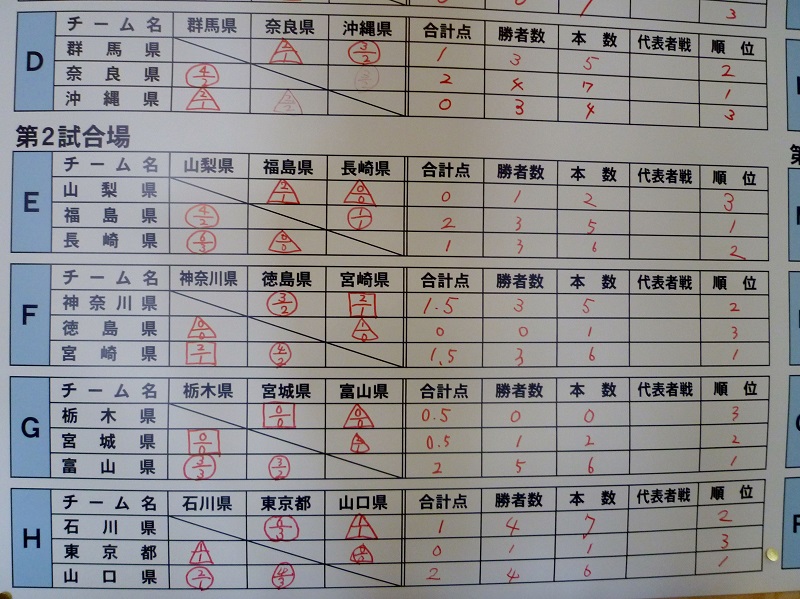 3
D チーム名 群馬県 奈良県 沖縄県 合計点 勝者数 本数 代表者戦 順位
群馬県 2/1 3/2 1 3 5 2
奈良県 4/2 2 4 7 1
沖縄県 2/1 0 3 4 3
第2試合場
E チーム名 山梨県 福島県 長崎県 合計点 勝者数 本数 代表者戦 順位
山梨県 2/1 0/0 0 1 2 3
福島県 4/2 1/1 2 3 5 1
長崎県 6/3 0/0 1 3 6 2
F チーム名 神奈川県 徳島県 宮崎県 合計点 勝者数 本数 代表者戦 順位
神奈川県 3/2 2/1 1.5 3 5 2
徳島県 0/0 1/0 0 0 1 3
宮崎県 2/1 4/2 1.5 3 6 1
G チーム名 栃木県 宮城県 富山県 合計点 勝者数 本数 代表者戦 順位
栃木県 0/0 0/0 0.5 0 0 3
宮城県 0/0 0.5 1 2 2
富山県 3/3 3/2 2 5 6 1
H チーム名 石川県 東京都 山口県 合計点 勝者数 本数 代表者戦 順位
石川県 1 4 7 2
東京都 1/1 0 1 1 3
山口県 4/3 2 4 6 1